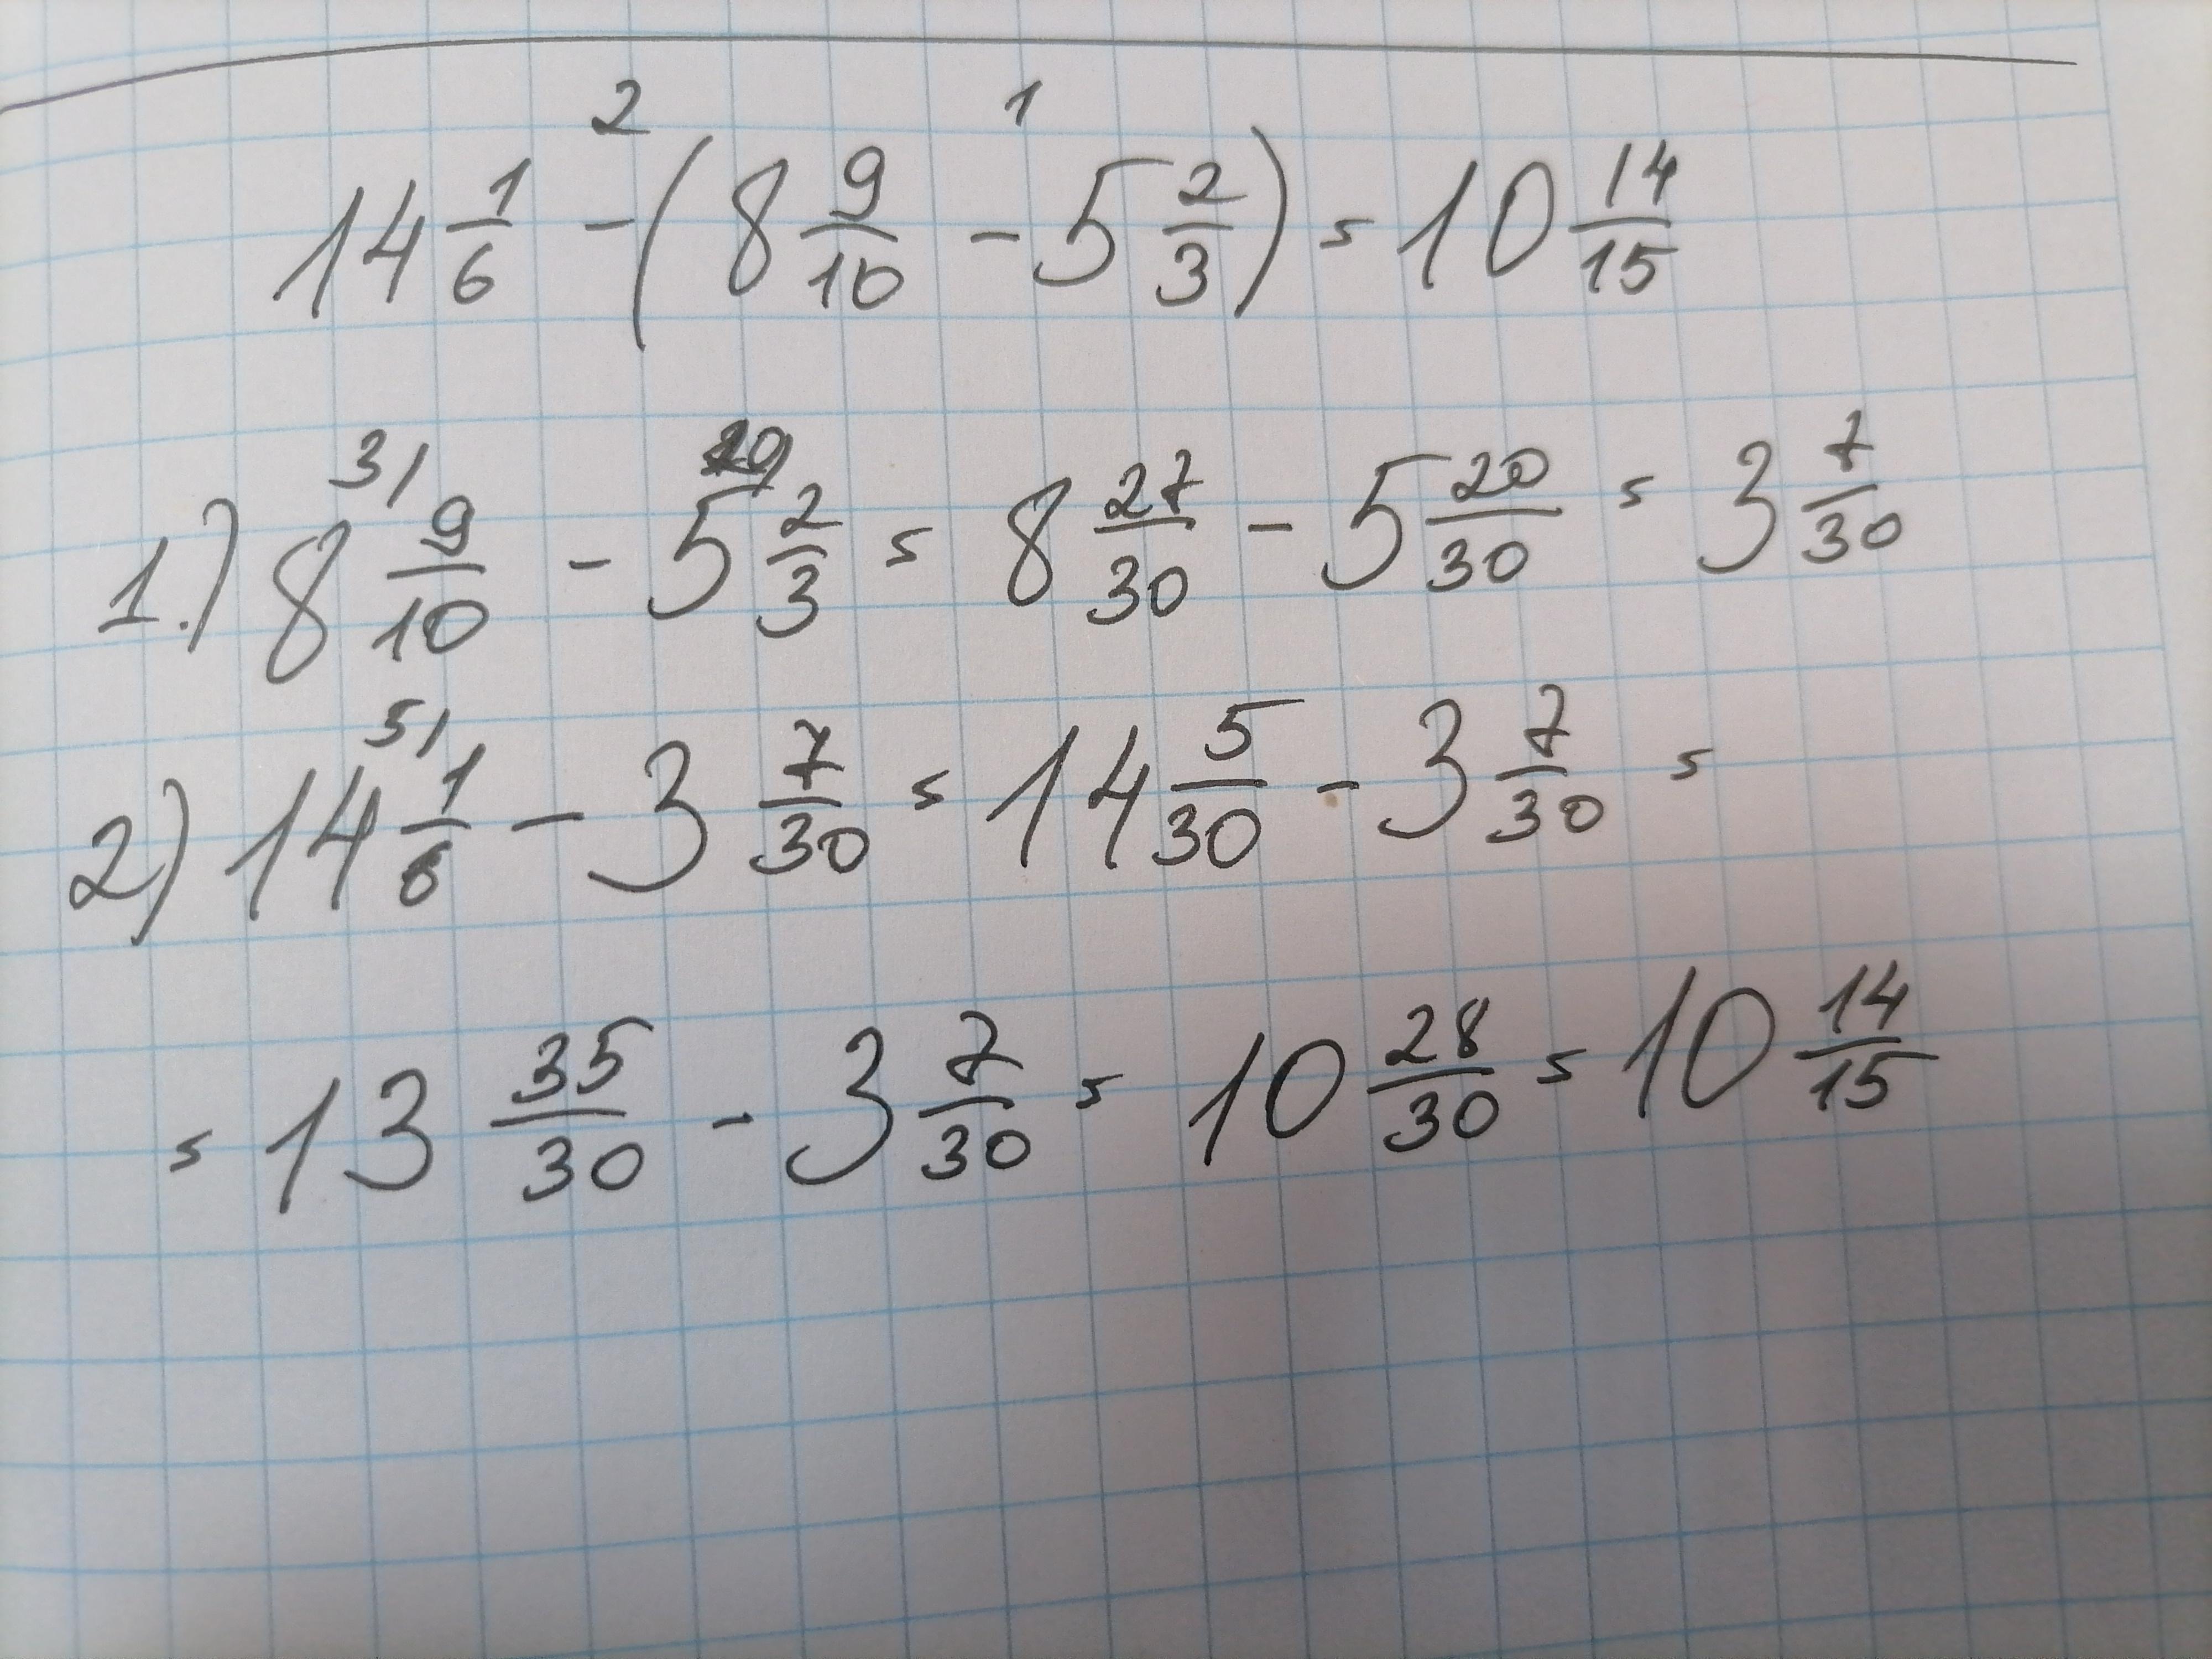 2 1
14 1/6 - (8 9/10 - 5 2/3) = 10 14/15
3/ 10/
1.) 8 9/10 - 5 2/3 = 8 27/30 - 5 20/30 = 3 7/30
5/
2) 14 1/6 - 3 7/30 = 14 5/30 - 3 7/30 =
= 13 35/30 - 3 7/30 = 10 28/30 = 10 14/15